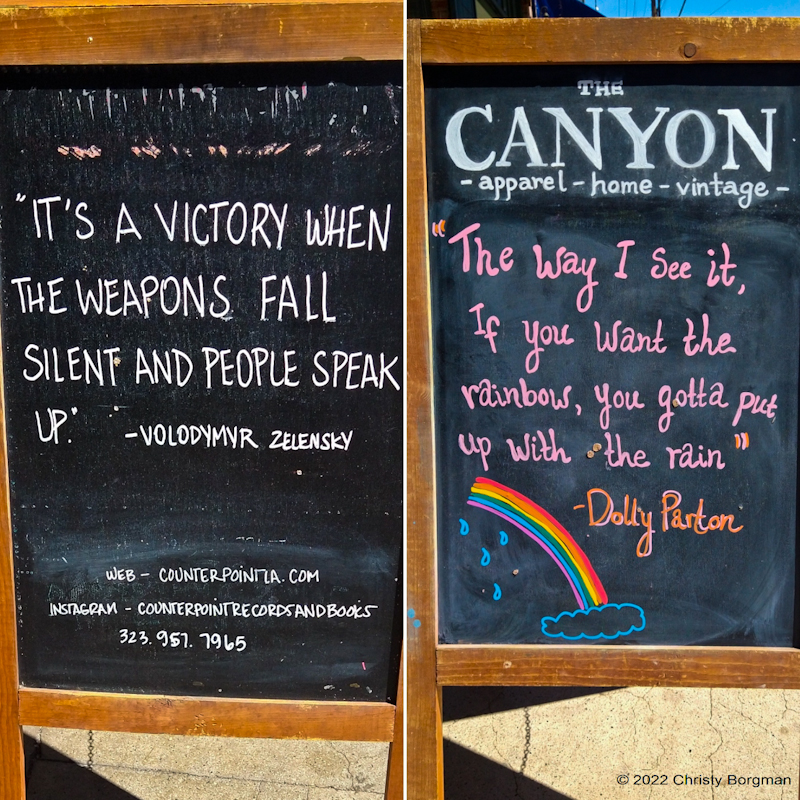 "IT'S A VICTORY WHEN
THE WEAPONS FALL
SILENT AND PEOPLE SPEAK
UP." -VOLODYMYR ZELENSKY
WEB - COUNTERPOINTLA.COM
INSTAGRAM - COUNTERPOINTRECORDSANDBOOKS
323.957.7965
THE
CANYON
- apparel - home - vintage -
"The way I see it,
If you want the
rainbow, you gotta put
up with the rain"
-Dolly Parton
© 2022 Christy Borgman